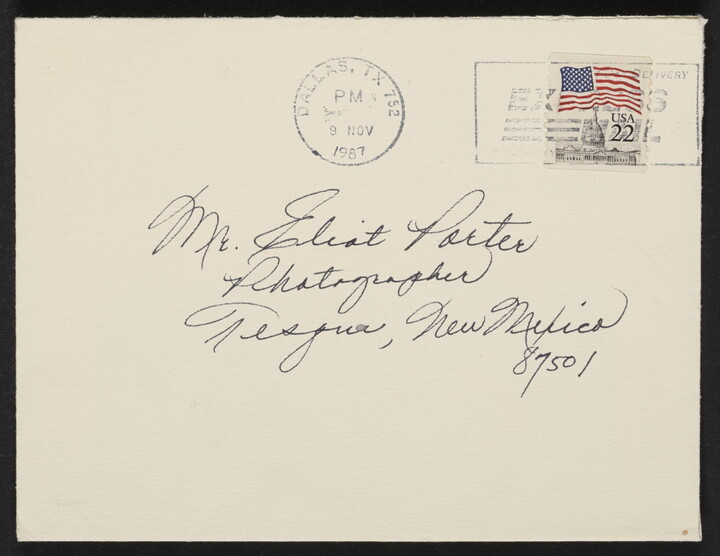 DALLAS, TX 752
PM
9 NOV
1987
DELIVERY
USA
22
Mr. Eliot Porter
Photographer
Tesque, New Mexico
87501